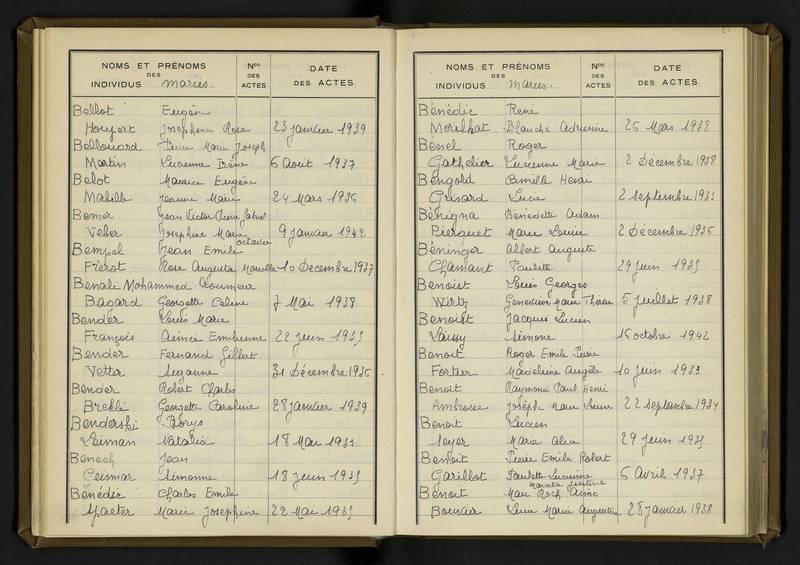 NOMS ET PRÉNOMS
DES
INDIVIDUS Mariés.
Nos
DES
ACTES
DATE
DES ACTES
Bellot Eugène
Houpert Joséphine Rose 23 janvier 1939
Bellouard Pierre Marie Joseph
Martin Lucienne Irène 6 Août 1937
Belot Maurice Eugène
Mabille Jeanne Marie 24 Mars 1936
Bemer Jean Victor Pierre
Veber Joséphine Marie 9 janvier 1942
Octavie
Bempel Jean Emile
Frérot Rose Augusta Marcelle 10 Décembre 1937
Benali Mohammed
Bagard Georgette Celine 7 Mai 1938
Bender Louis Marie
François Aimée Emilienne 22 juin 1935
Bender Fernand Gilbert
Vetter Suzanne 31 Décembre 1936
Bender Robert Charles
Georgette Caroline 28 janvier 1939
Benderski Borys
Natalie 18 Mai 1933
Benech Jean
Simonne 18 juin 1935
Bénédic Charles Emile
Spaeter Marie Joséphine 22 Mai 1935
NOMS ET PRÉNOMS
DES
INDIVIDUS Mariés.
Nos
DES
ACTES
DATE
DES ACTES
Bénédic René
Morilhat Blanche Adrienne 26 Mars 1938
Bénel Roger
Gathelier Lucienne Marie 2 Décembre 1938
Bengold Camille Henri
Grisard Lucie 2 septembre 1933
Bénigna Bénédette Adam
Pierquet Marie Louise 2 Décembre 1936
Béninger Albert Auguste
Chamant Paulette 29 juin 1935
Benoist Louis Georges
Wirtz Geneviève Marie Thérèse 5 juillet 1938
Benoist Jacques Lucien
Simone 16 octobre 1942
Benoit Roger Emile Pierre
Fortier Madeleine Angèle 10 juin 1933
Benoit Raymond Paul Henri
Ambroise Josèphe Marie Louise 22 septembre 1934
Benoit Lucien
Seyer Maria Alice 29 juin 1935
Benoit Pierre Emile Robert
Garillot Paulette Lucienne 6 Avril 1937
Marcelle Justine
Benoit Marc Roch Aimé
Bouvair Lucie Marie Augustine 28 janvier 1938